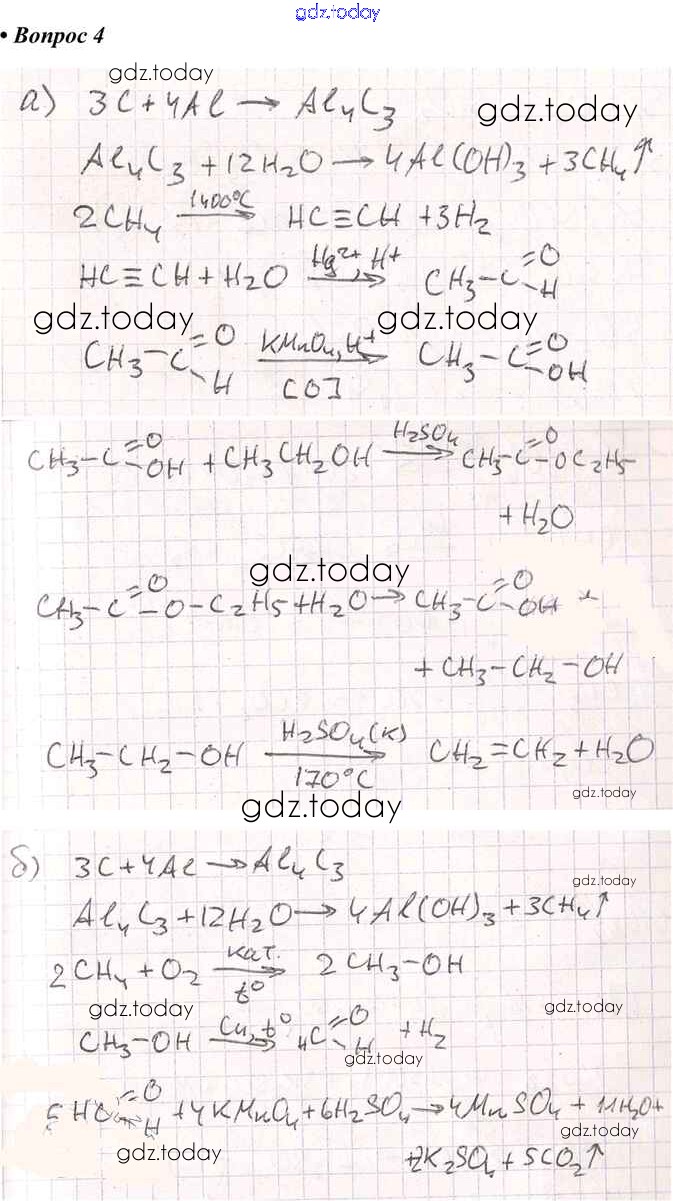 gdz.today
• Вопрос 4
gdz.today
а) 3C + 4Al → Al₄C₃
gdz.today
Al₄C₃ + 12H₂O → 4Al(OH)₃ + 3CH₄↑
2CH₄ 1400°C → HC≡CH + 3H₂
HC≡CH + H₂O Hg²⁺, H⁺ → CH₃-C=O H
gdz.today gdz.today
CH₃-C=O H KMnO₄, H⁺ [O] → CH₃-C=O OH
CH₃-C=O OH + CH₃CH₂OH H₂SO₄ → CH₃-C=O -OC₂H₅
+ H₂O
gdz.today
CH₃-C=O -O-C₂H₅ + H₂O → CH₃-C=O OH +
+ CH₃-CH₂-OH
CH₃-CH₂-OH H₂SO₄(к) 170°C → CH₂=CH₂ + H₂O
gdz.today
gdz.today
б) 3C + 4Al → Al₄C₃
gdz.today
Al₄C₃ + 12H₂O → 4Al(OH)₃ + 3CH₄↑
2CH₄ + O₂ кат. t° → 2CH₃-OH
gdz.today gdz.today
CH₃-OH Cu, t° → HC=O H + H₂
gdz.today
5HC=O H + 4KMnO₄ + 6H₂SO₄ → 4MnSO₄ + 11H₂O +
gdz.today
+2K₂SO₄ + 5CO₂↑
gdz.today